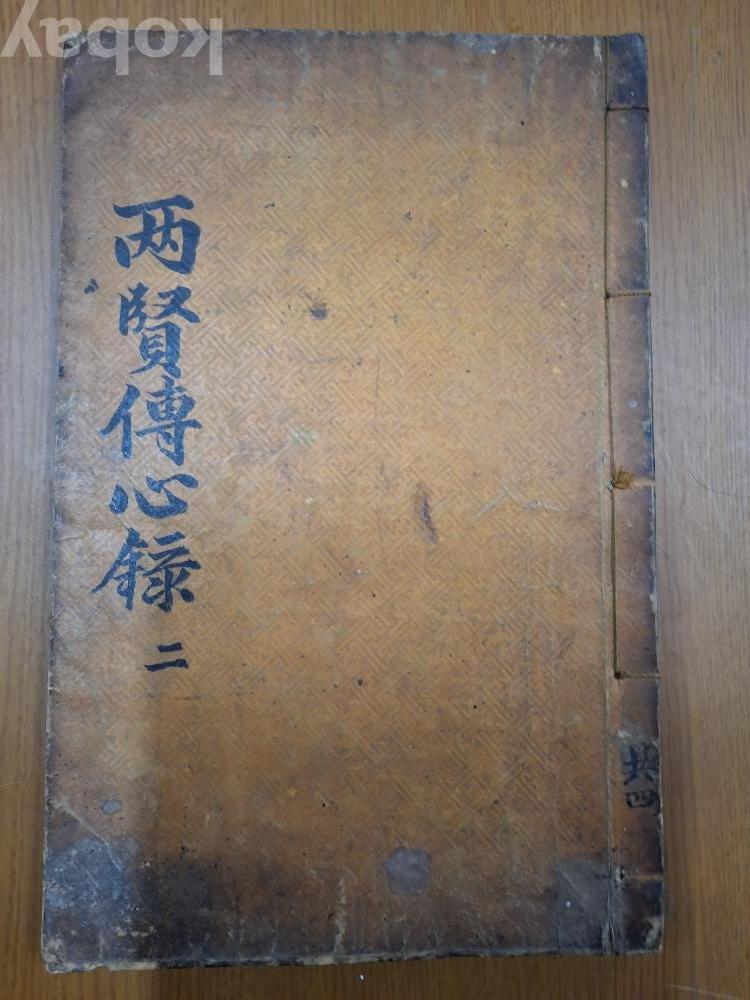 kobay
两賢傳心錄 二
共四